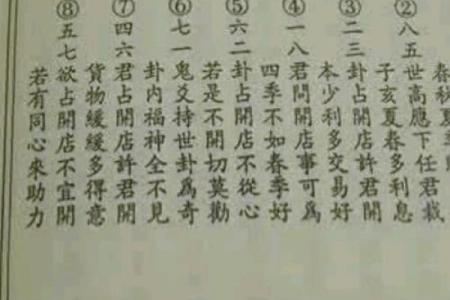 春秋夏季
② 八五世高應下任君裁
子亥夏春多利息
③ 二三卦占開店許君開
本少利多交易好
④ 一八君問開店事可為
四季不如春季好
⑤ 六二卦占開店不從心
若是不開切莫勸
⑥ 七一鬼爻持世卦為奇
卦內福神全不見
⑦ 四六君占開店許君開
貨物緩緩多得意
⑧ 五七欲占開店不宜開
若有同心來助力